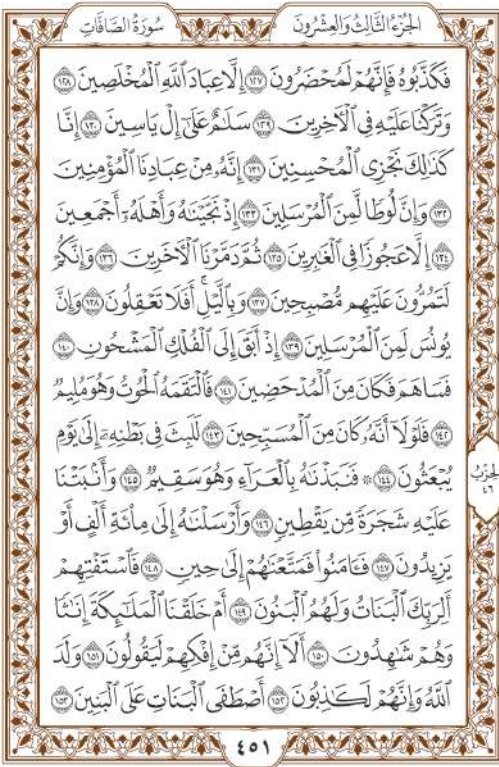 الجُزْءُ الثَّالِثُ وَالعِشْرُونَ سُورَةُ الصَّافَّاتِ
فَكَذَّبُوهُ فَإِنَّهُمْ لَمُحْضَرُونَ ١٢٧ إِلَّا عِبَادَ ٱللَّهِ ٱلْمُخْلَصِينَ ١٢٨
وَتَرَكْنَا عَلَيْهِ فِي ٱلْأٓخِرِينَ ١٢٩ سَلَٰمٌ عَلَىٰٓ إِلْ يَاسِينَ ١٣٠ إِنَّا
كَذَٰلِكَ نَجْزِي ٱلْمُحْسِنِينَ ١٣١ إِنَّهُۥ مِنْ عِبَادِنَا ٱلْمُؤْمِنِينَ
١٣٢ وَإِنَّ لُوطًا لَّمِنَ ٱلْمُرْسَلِينَ ١٣٣ إِذْ نَجَّيْنَٰهُ وَأَهْلَهُۥٓ أَجْمَعِينَ
١٣٤ إِلَّا عَجُوزًا فِي ٱلْغَٰبِرِينَ ١٣٥ ثُمَّ دَمَّرْنَا ٱلْأٓخَرِينَ ١٣٦ وَإِنَّكُمْ
لَتَمُرُّونَ عَلَيْهِم مُّصْبِحِينَ ١٣٧ وَبِٱلَّيْلِۚ أَفَلَا تَعْقِلُونَ ١٣٨ وَإِنَّ
يُونُسَ لَمِنَ ٱلْمُرْسَلِينَ ١٣٩ إِذْ أَبَقَ إِلَى ٱلْفُلْكِ ٱلْمَشْحُونِ ١٤٠
فَسَاهَمَ فَكَانَ مِنَ ٱلْمُدْحَضِينَ ١٤١ فَٱلْتَقَمَهُ ٱلْحُوتُ وَهُوَ مُلِيمٌ
١٤٢ فَلَوْلَآ أَنَّهُۥ كَانَ مِنَ ٱلْمُسَبِّحِينَ ١٤٣ لَلَبِثَ فِي بَطْنِهِۦٓ إِلَىٰ يَوْمِ
يُبْعَثُونَ ١٤٤ ۞ فَنَبَذْنَٰهُ بِٱلْعَرَآءِ وَهُوَ سَقِيمٌ ١٤٥ وَأَنۢبَتْنَا
عَلَيْهِ شَجَرَةً مِّن يَقْطِينٍ ١٤٦ وَأَرْسَلْنَٰهُ إِلَىٰ مِا۟ئَةِ أَلْفٍ أَوْ
يَزِيدُونَ ١٤٧ فَـَٔامَنُوا۟ فَمَتَّعْنَٰهُمْ إِلَىٰ حِينٍ ١٤٨ فَٱسْتَفْتِهِمْ
أَلِرَبِّكَ ٱلْبَنَاتُ وَلَهُمُ ٱلْبَنُونَ ١٤٩ أَمْ خَلَقْنَا ٱلْمَلَٰٓئِكَةَ إِنَٰثًا
وَهُمْ شَٰهِدُونَ ١٥٠ أَلَآ إِنَّهُم مِّنْ إِفْكِهِمْ لَيَقُولُونَ ١٥١ وَلَدَ
ٱللَّهُ وَإِنَّهُمْ لَكَٰذِبُونَ ١٥٢ أَصْطَفَى ٱلْبَنَاتِ عَلَى ٱلْبَنِينَ ١٥٣
الحِزْبُ
٤٦
٤٥١